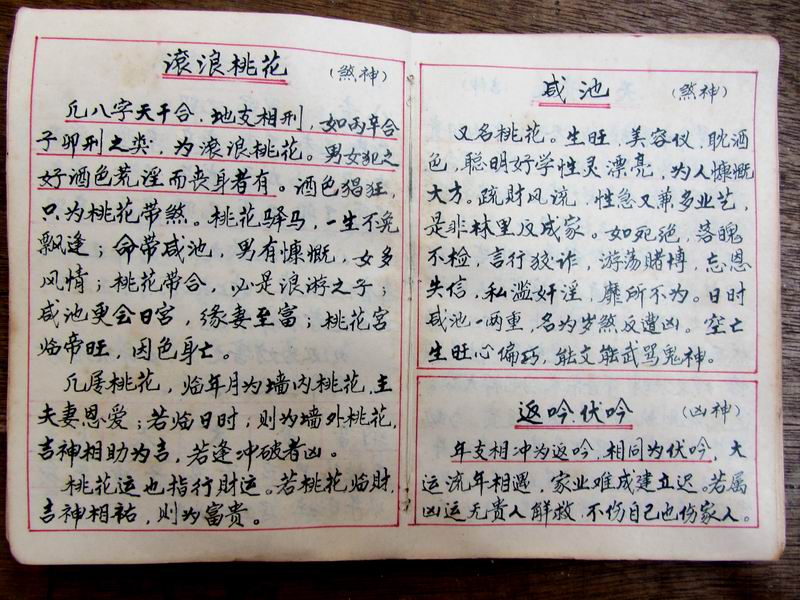 滚浪桃花 (煞神)
凡八字天干合，地支相刑，如丙辛合
子卯刑之类，为滚浪桃花。男女犯之
好酒色荒淫而丧身者有。酒色猖狂，
只为桃花带煞。桃花驿马，一生不免
飘逢；命带咸池，男有慷慨，女多
风情；桃花带合，必是浪游之子；
咸池更会日宫，缘妻至富；桃花宫
临帝旺，因色身亡。
凡居桃花，临年月为墙内桃花，主
夫妻恩爱；若临日时，则为墙外桃花，
吉神相助为吉，若逢冲破者凶。
桃花运也指行财运。若桃花临财，
吉神相祐，则为富贵。
咸池 (煞神)
又名桃花。生旺，美容仪，耽酒
色，聪明好学性灵漂亮，为人慷慨
大方。疏财风流，性急又兼多业艺，
是非林里反成家。如死绝，落魄
不检，言行狡诈，游荡赌博，忘恩
失信，私滥奸淫，靡所不为。日时
咸池一两重，名为岁煞反遭凶。空亡
生旺心偏巧，能文能武骂鬼神。
返吟伏吟 (凶神)
年支相冲为返吟，相同为伏吟，大
运流年相遇，家业难成建立迟。若属
凶运无贵人解救，不伤自己也伤家人。